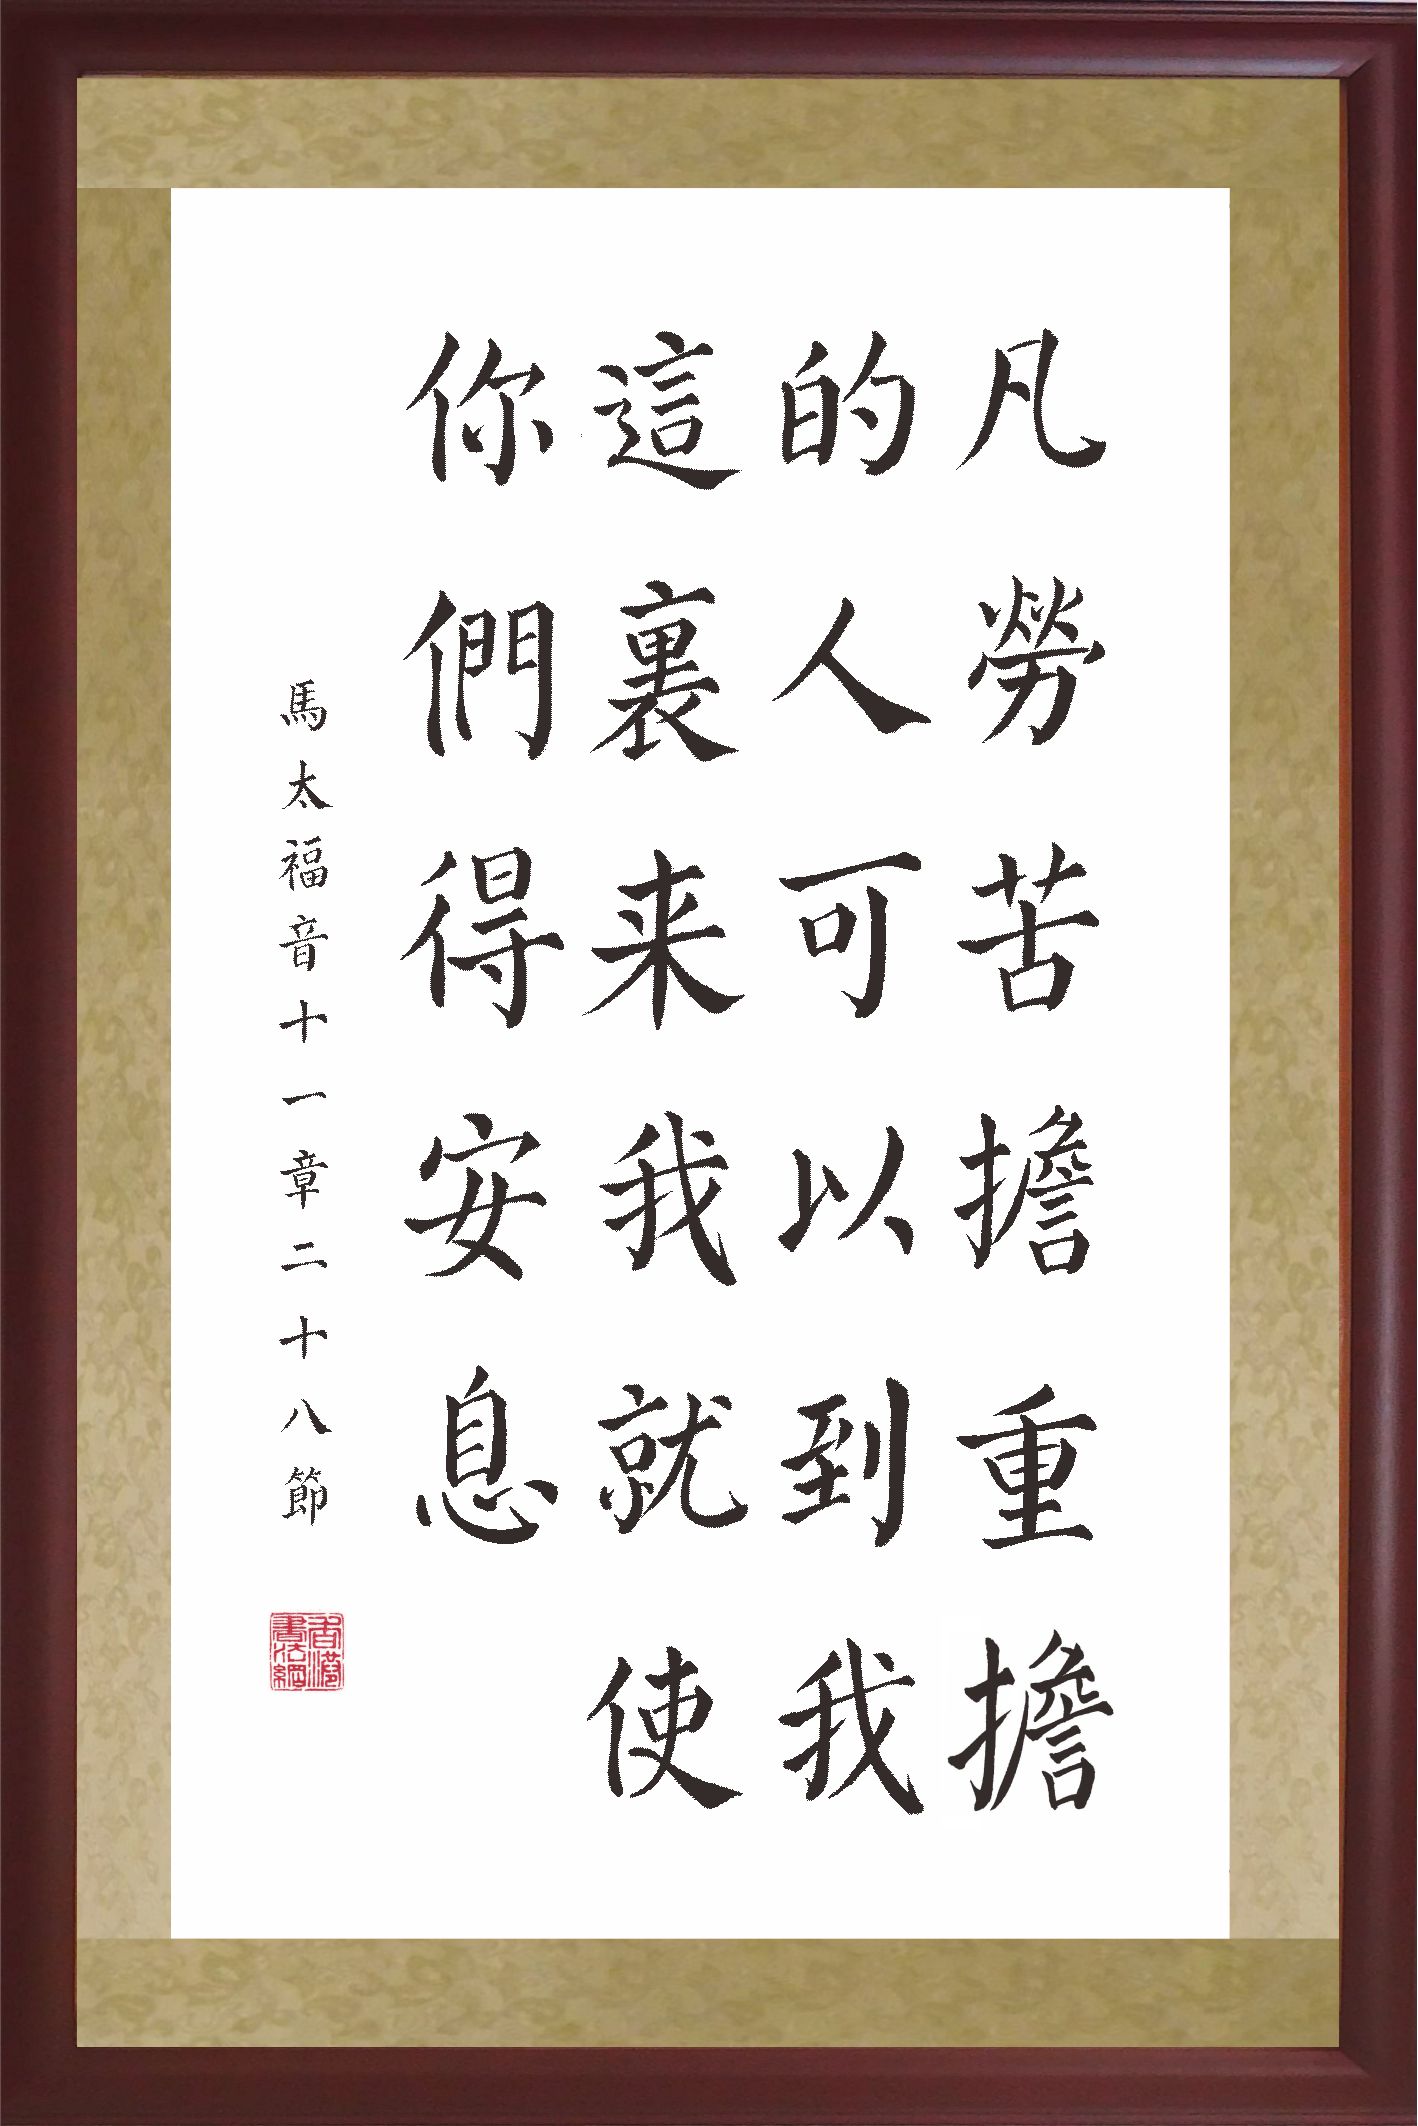 凡勞苦擔重擔
的人可以到我
這裏来我就使
你們得安息
馬太福音十一章二十八節
香港書法網